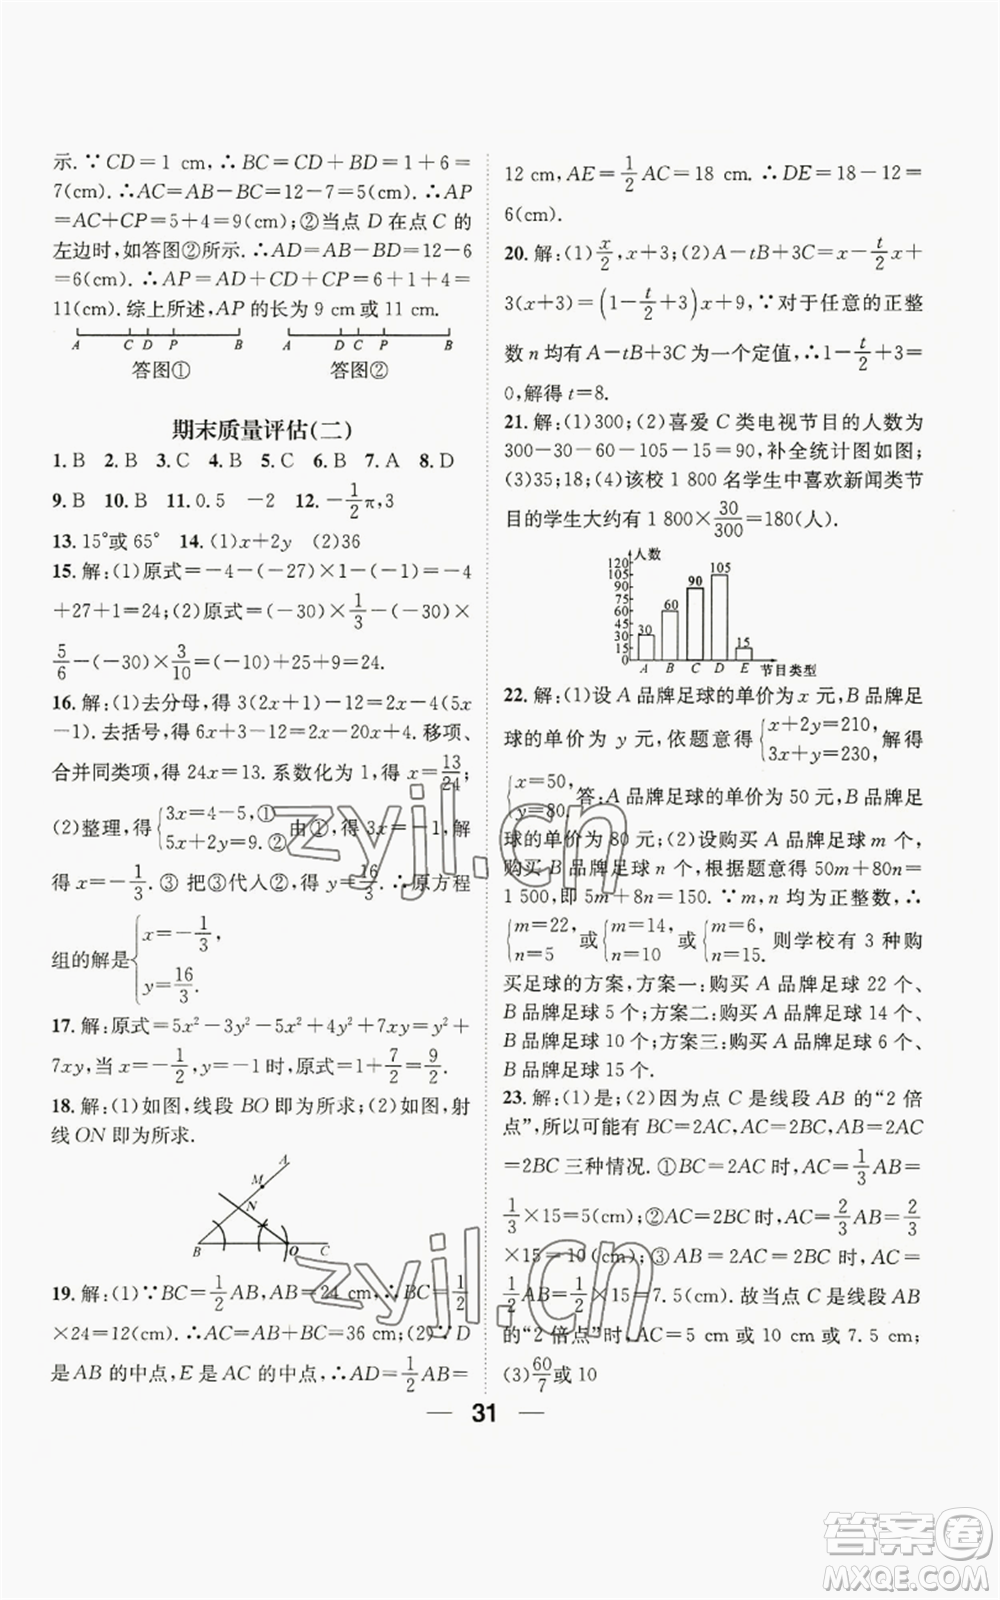 示.∵CD=1 cm,∴BC=CD+BD=1+6=
7(cm).∴AC=AB-BC=12-7=5(cm).∴AP
=AC+CP=5+4=9(cm);②当点 D 在点 C 的
左边时,如答图②所示.∴AD=AB-BD=12-6
=6(cm).∴AP=AD+CD+CP=6+1+4=
11(cm).综上所述,AP 的长为 9 cm 或 11 cm.
A C D P B
A D C P B
答图① 答图②
期末质量评估(二)
1.B 2.B 3.C 4.B 5.C 6.B 7.A 8.D
9.B 10.B 11.0.5 -2 12.-1/2π,3
13.15°或 65° 14.(1)x+2y (2)36
15.解:(1)原式=-4-(-27)×1-(-1)=-4
+27+1=24;(2)原式=(-30)×1/3-(-30)×
5/6-(-30)×3/10=(-10)+25+9=24.
16.解:(1)去分母,得 3(2x+1)-12=2x-4(5x
-1).去括号,得 6x+3-12=2x-20x+4.移项、
合并同类项,得 24x=13.系数化为 1,得 x=13/24;
(2)整理,得{3x=4-5,① 5x+2y=9.②由①,得 3x=-1,解
得 x=-1/3.③ 把③代入②,得 y=16/3.∴原方程
组的解是{x=-1/3, y=16/3.
17.解:原式=5x²-3y²-5x²+4y²+7xy=y²+
7xy,当 x=-1/2,y=-1 时,原式=1+7/2=9/2.
18.解:(1)如图,线段 BO 即为所求;(2)如图,射
线 ON 即为所求.
A
M
N
B O C
19.解:(1)∵BC=1/2AB,AB=24 cm,∴BC=1/2
×24=12(cm).∴AC=AB+BC=36 cm;(2)∵D
是 AB 的中点,E 是 AC 的中点,∴AD=1/2AB=
12 cm,AE=1/2AC=18 cm.∴DE=18-12=
6(cm).
20.解:(1)x/2,x+3;(2)A-tB+3C=x-t/2x+
3(x+3)=(1-t/2+3)x+9,∵对于任意的正整
数 n 均有 A-tB+3C 为一个定值,∴1-t/2+3=
0,解得 t=8.
21.解:(1)300;(2)喜爱 C 类电视节目的人数为
300-30-60-105-15=90,补全统计图如图;
(3)35;18;(4)该校 1 800 名学生中喜欢新闻类节
目的学生大约有 1 800×30/300=180(人).
人数
120
105
90
75
60
45
30
15
0
30 60 90 105 15
A B C D E 节目类型
22.解:(1)设 A 品牌足球的单价为 x 元,B 品牌足
球的单价为 y 元,依题意得{x+2y=210, 3x+y=230,解得
{x=50, y=80.答:A 品牌足球的单价为 50 元,B 品牌足
球的单价为 80 元;(2)设购买 A 品牌足球 m 个,
购买 B 品牌足球 n 个,根据题意得 50m+80n=
1 500,即 5m+8n=150.∵m,n 均为正整数,∴
{m=22, n=5 或{m=14, n=10 或{m=6, n=15.则学校有 3 种购
买足球的方案,方案一:购买 A 品牌足球 22 个、
B 品牌足球 5 个;方案二:购买 A 品牌足球 14 个、
B 品牌足球 10 个;方案三:购买 A 品牌足球 6 个、
B 品牌足球 15 个.
23.解:(1)是;(2)因为点 C 是线段 AB 的“2 倍
点”,所以可能有 BC=2AC,AB=2AC,AB
=2BC 三种情况.①BC=2AC 时,AC=1/3AB=
1/3×15=5(cm);②AC=2BC 时,AC=2/3AB=2/3
×15=10(cm);③AB=2AC=2BC 时,AC=
1/2AB=1/2×15=7.5(cm).故当点 C 是线段 AB
的“2 倍点”时,AC=5 cm 或 10 cm 或 7.5 cm;
(3)60/7或 10
31
zyjl.cn
zyjl.cn
答案圈
MXQE.COM